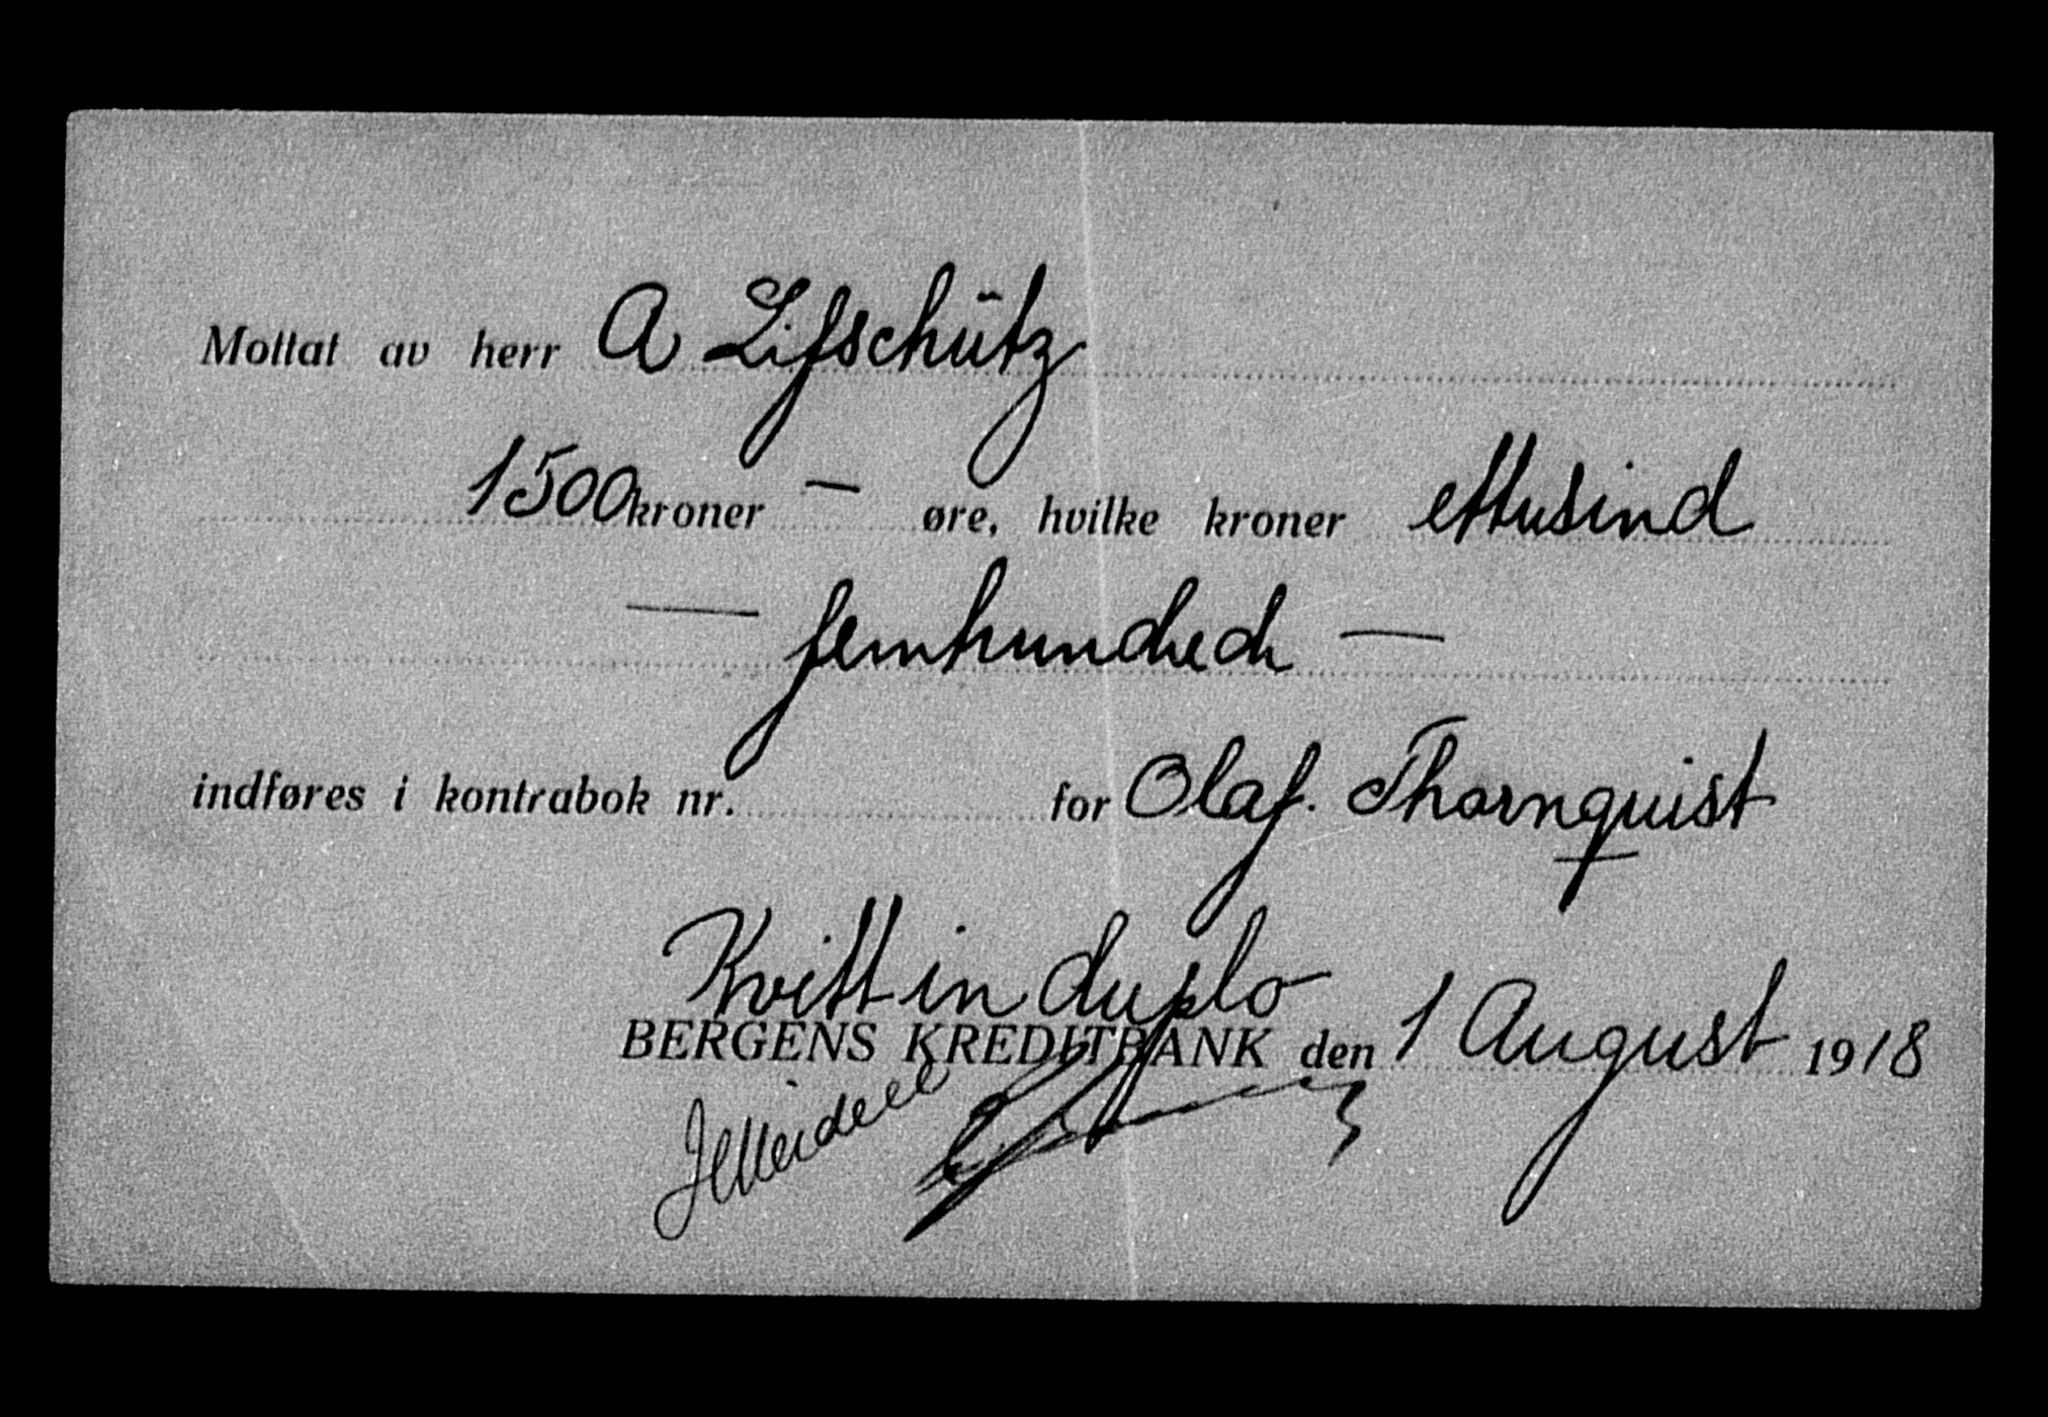 Mottat av herr A Lifschütz
1500 kroner — øre, hvilke kroner ettusind
— femhundrede —
indføres i kontrabok nr. for Olaf. Thornquist
Kvitt in duplo
BERGENS KREDITBANK den 1 August 1918